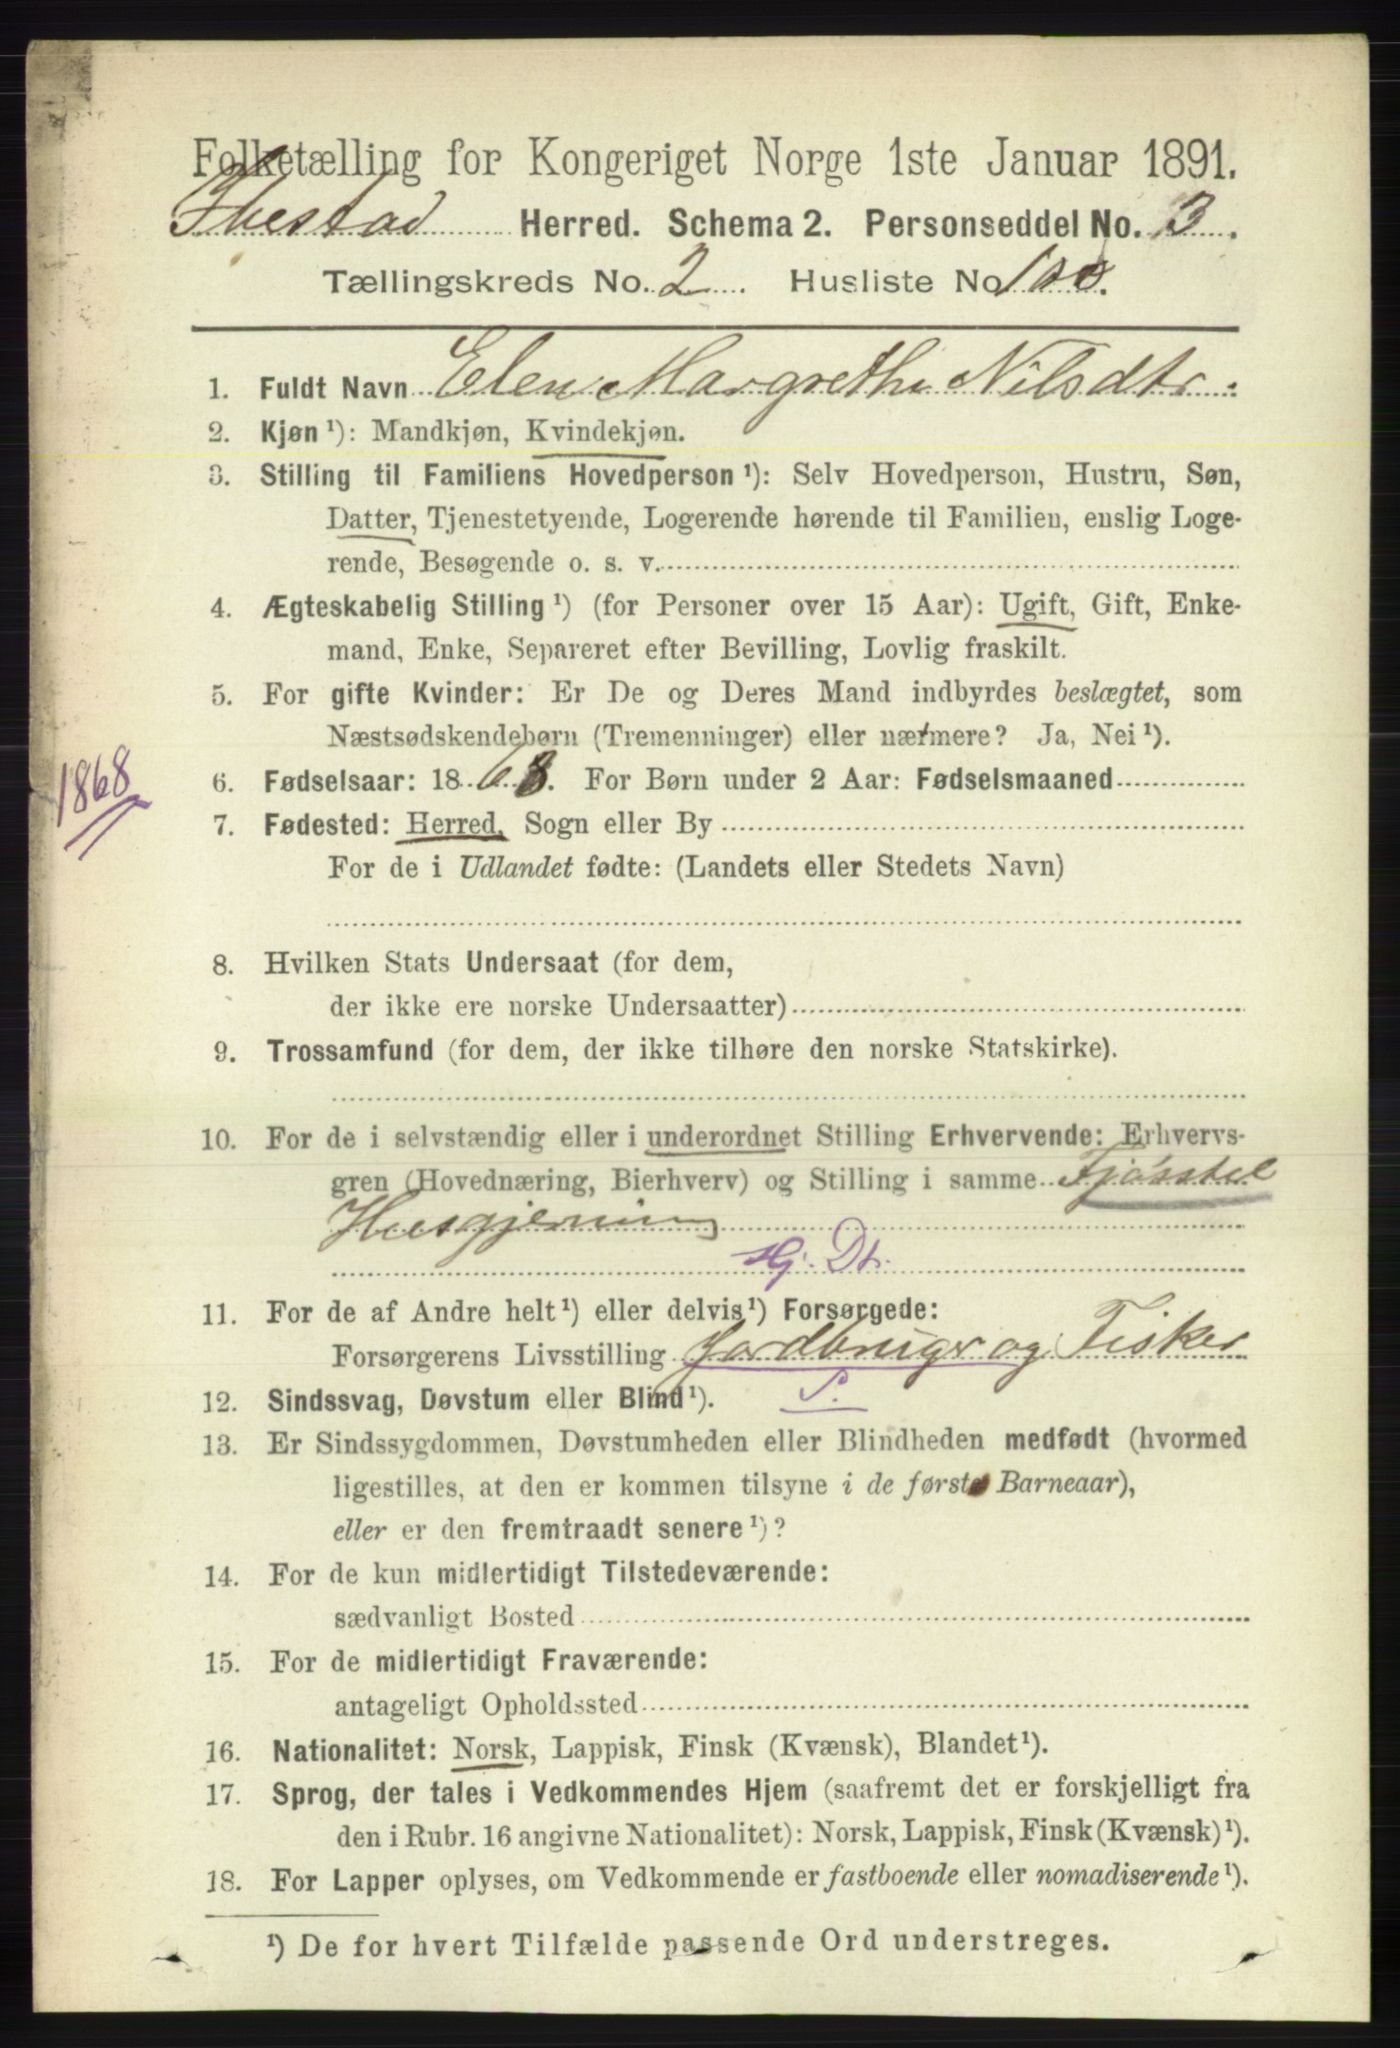 Folketælling for Kongeriget Norge 1ste Januar 1891.
Ibestad Herred. Schema 2. Personseddel No. 3.
Tællingskreds No. 2 Husliste No 100.
1. Fuldt Navn Elen Margrethe Nilsdtr.
2. Kjøn ¹): Mandkjøn, Kvindekjøn.
3. Stilling til Familiens Hovedperson ¹): Selv Hovedperson, Hustru, Søn,
Datter, Tjenestetyende, Logerende hørende til Familien, enslig Loge-
rende, Besøgende o. s. v.
4. Ægteskabelig Stilling ¹) (for Personer over 15 Aar): Ugift, Gift, Enke-
mand, Enke, Separeret efter Bevilling, Lovlig fraskilt.
5. For gifte Kvinder: Er De og Deres Mand indbyrdes beslægtet, som
Næstsødskendebørn (Tremenninger) eller nærmere? Ja, Nei ¹).
1868
6. Fødselsaar: 1868. For Børn under 2 Aar: Fødselsmaaned
7. Fødested: Herred, Sogn eller By
For de i Udlandet fødte: (Landets eller Stedets Navn)
8. Hvilken Stats Undersaat (for dem,
der ikke ere norske Undersaatter)
9. Trossamfund (for dem, der ikke tilhøre den norske Statskirke).
10. For de i selvstændig eller i underordnet Stilling Erhvervende: Erhvervs-
gren (Hovednæring, Bierhverv) og Stilling i samme Fjøsstel
Husgjerning
Hj. Dt.
11. For de af Andre helt ¹) eller delvis ¹) Forsørgede:
Forsørgerens Livsstilling Jordbruger og Fisker
S.
12. Sindssvag, Døvstum eller Blind ¹).
13. Er Sindssygdommen, Døvstumheden eller Blindheden medfødt (hvormed
ligestilles, at den er kommen tilsyne i de første Barneaar),
eller er den fremtraadt senere ¹)?
14. For de kun midlertidigt Tilstedeværende:
sædvanligt Bosted
15. For de midlertidigt Fraværende:
antageligt Opholdssted
16. Nationalitet: Norsk, Lappisk, Finsk (Kvænsk), Blandet ¹).
17. Sprog, der tales i Vedkommendes Hjem (saafremt det er forskjelligt fra
den i Rubr. 16 angivne Nationalitet): Norsk, Lappisk, Finsk (Kvænsk) ¹).
18. For Lapper oplyses, om Vedkommende er fastboende eller nomadiserende ¹).
¹) De for hvert Tilfælde passende Ord understreges.